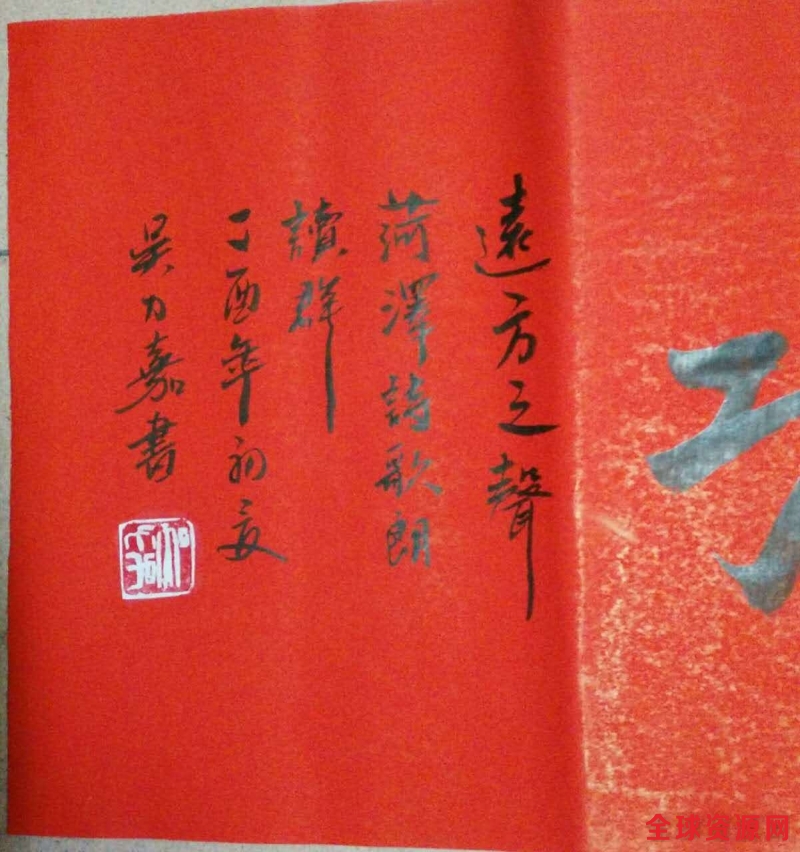 遠方之聲
菏澤詩歌朗
讀群
丁酉年初夏
吴力嘉書
全球资源网